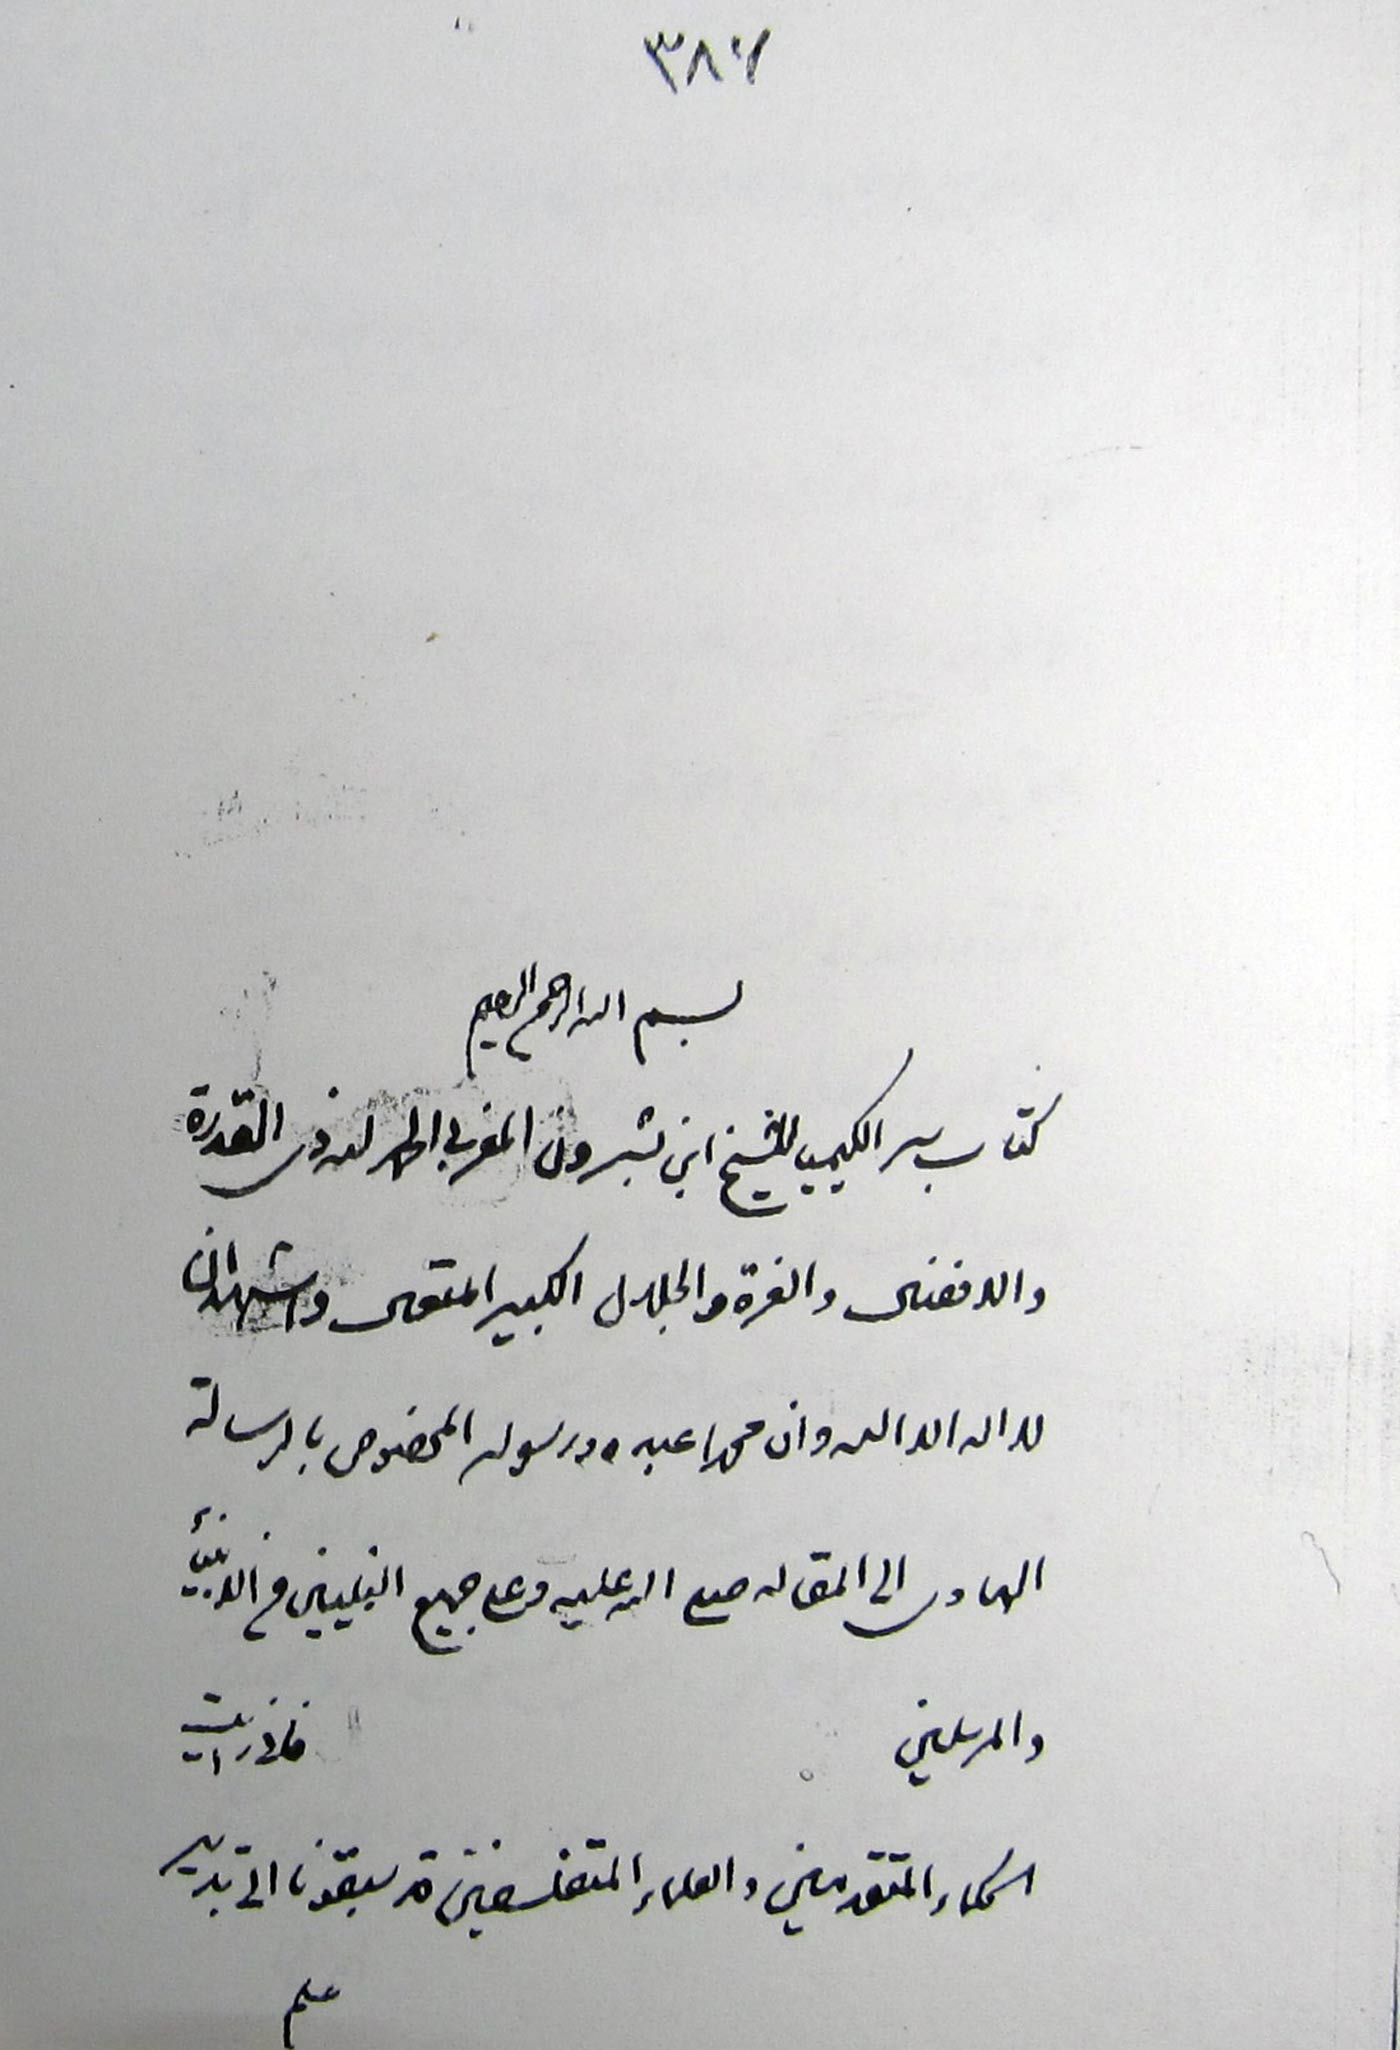 ٣٨٧
بسم الله الرحمن الرحيم
كتاب سر الكيميا للشيخ ابن بشرون المغربي الحمد لله ذى القدرة
والافضال والعزة والجلال الكبير المتعال واشهد ان
لا اله الا الله وان محمدا عبده ورسوله المخصوص بالرسالة
الهادى الى المقاله صلى الله عليه وعلى جميع النبيين من الانبياء
والمرسلين فانى رايت
الحكماء المتقدمين والعلماء المتفلسفين قد سبقونا الى تدبير
علم